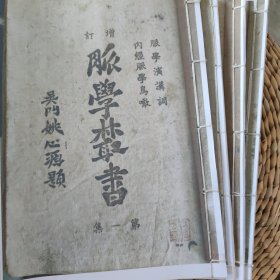 脈學演講詞
內經脈學鳥瞰
增訂
脈學叢書
第一集
吳門姚心源題